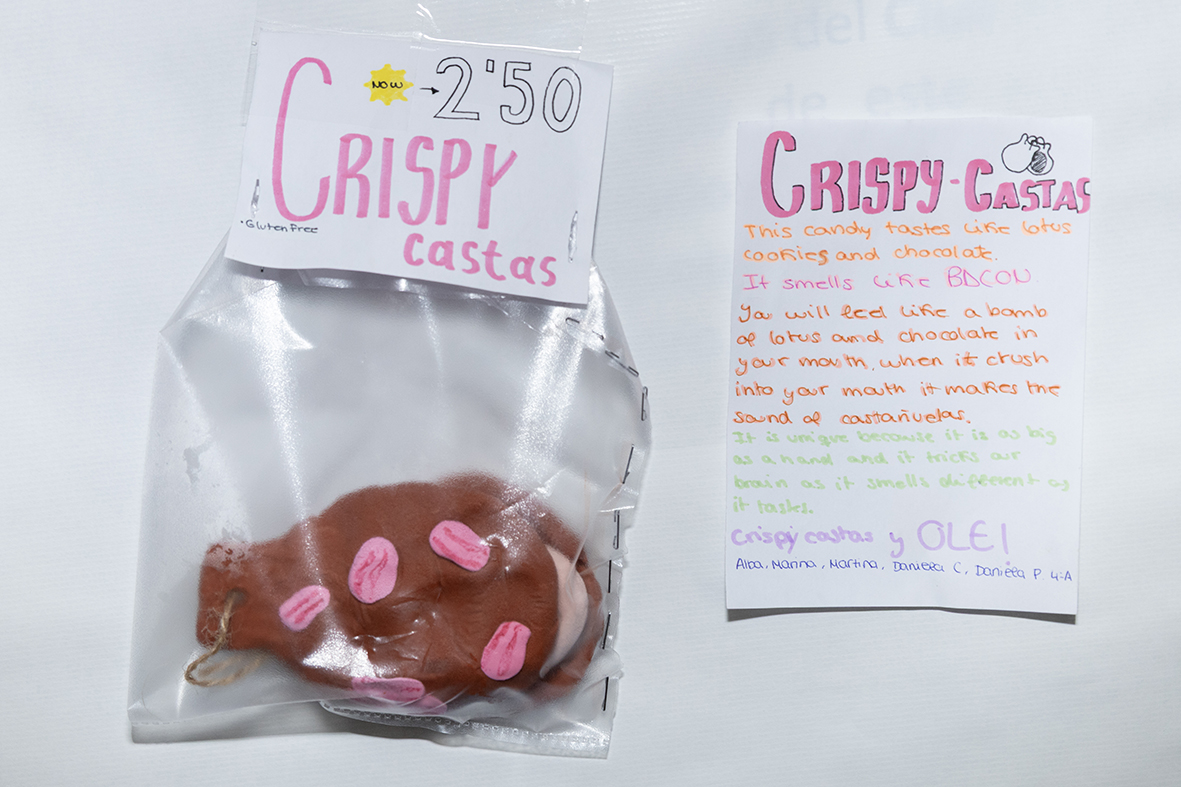 NOW → 2'50
CRISPY
castas
·Gluten Free
CRISPY-CASTAS
This candy tastes like lotus
cookies and chocolate.
It smells like BACON.
You will feel like a bomb
of lotus and chocolate in
your mouth, when it crush
into your mouth it makes the
sound of castañuelas.
It is unique because it is as big
as a hand and it tricks our
brain as it smells different as
it tasks.
Crispy castas y OLE!
Alba, Marina, Martina, Daniela C, Daniela P. 4ºA
del
de este